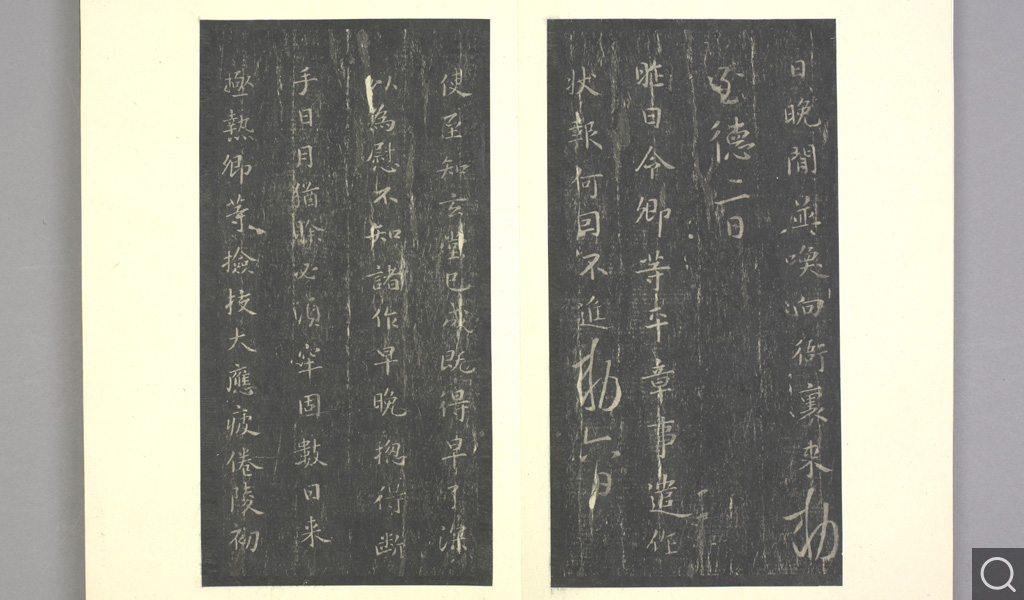 日晚間並喚向衙裏來勅
至德二日
昨日令卿等平章事遣作
狀報何因不進勅六日
使至知玄堂已成既得早了深
以為慰不知諸作早晚揔得斷
手日月猶賒必須牢固數日来
極熱卿等撿挍大應疲倦陵初